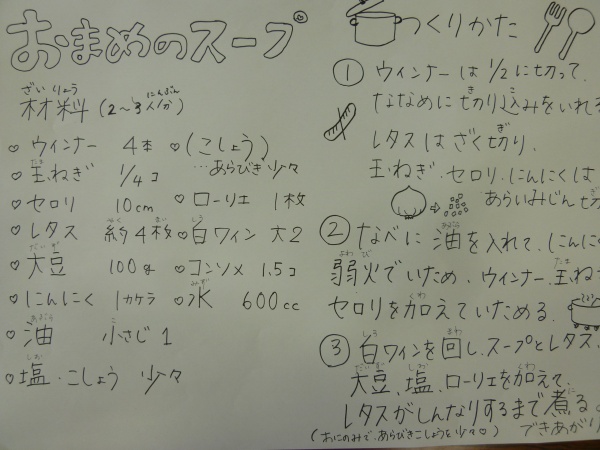 おまめのスープ
ざいりょう にんぶん
材料 (2〜3人分)
♡ ウィンナー 4本
たま
♡ 玉ねぎ 1/4コ
♡ セロリ 10cm
やく まい
♡ レタス 約4枚
だいず
♡ 大豆 100g
♡ にんにく 1カケラ
あぶら こ
♡ 油 小さじ1
しお
♡ 塩・こしょう 少々
♡ (こしょう)
…あらびき少々
♡ ローリエ 1枚
しろ
♡ 白ワイン 大2
♡ コンソメ 1.5コ
みず
♡ 水 600cc
つくりかた
① ウィンナーは1/2に切って、
き こ
ななめに切り込みをいれ
レタスはざく切り、
玉ねぎ・セロリ・にんにくは
あらいみじん切
あぶら
② なべに油を入れて、にんにく
よわび たま
弱火でいため、ウィンナー、玉ね
くわ
セロリを加えていためる。
しろ まわ
③ 白ワインを回し、スープとレタス、
だいず しお くわ
大豆、塩、ローリエを加えて、
に
レタスがしんなりするまで煮る。
(おにのみで、あらびきこしょうを少々♡) できあがり